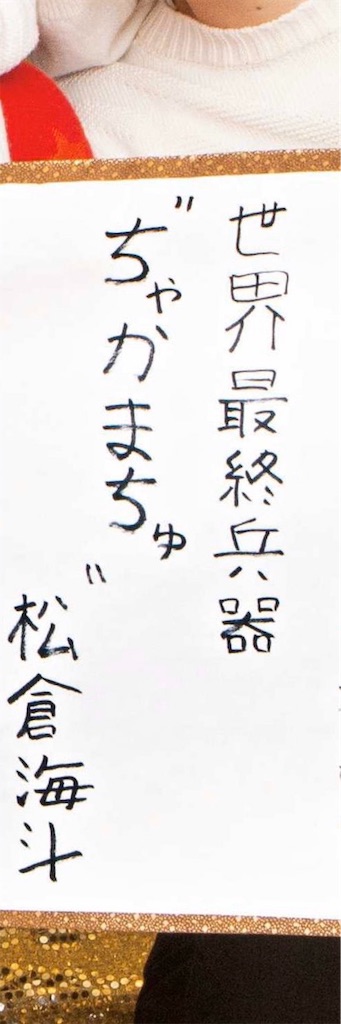 世界最終兵器
"ちゃかまちゅ"
松倉海斗